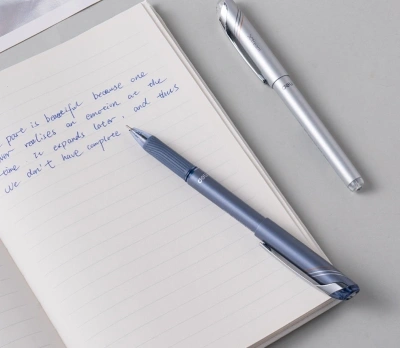 past is beautiful because one
never realises an emotion at the
time. It expands later, and thus
we don't have complete
deli